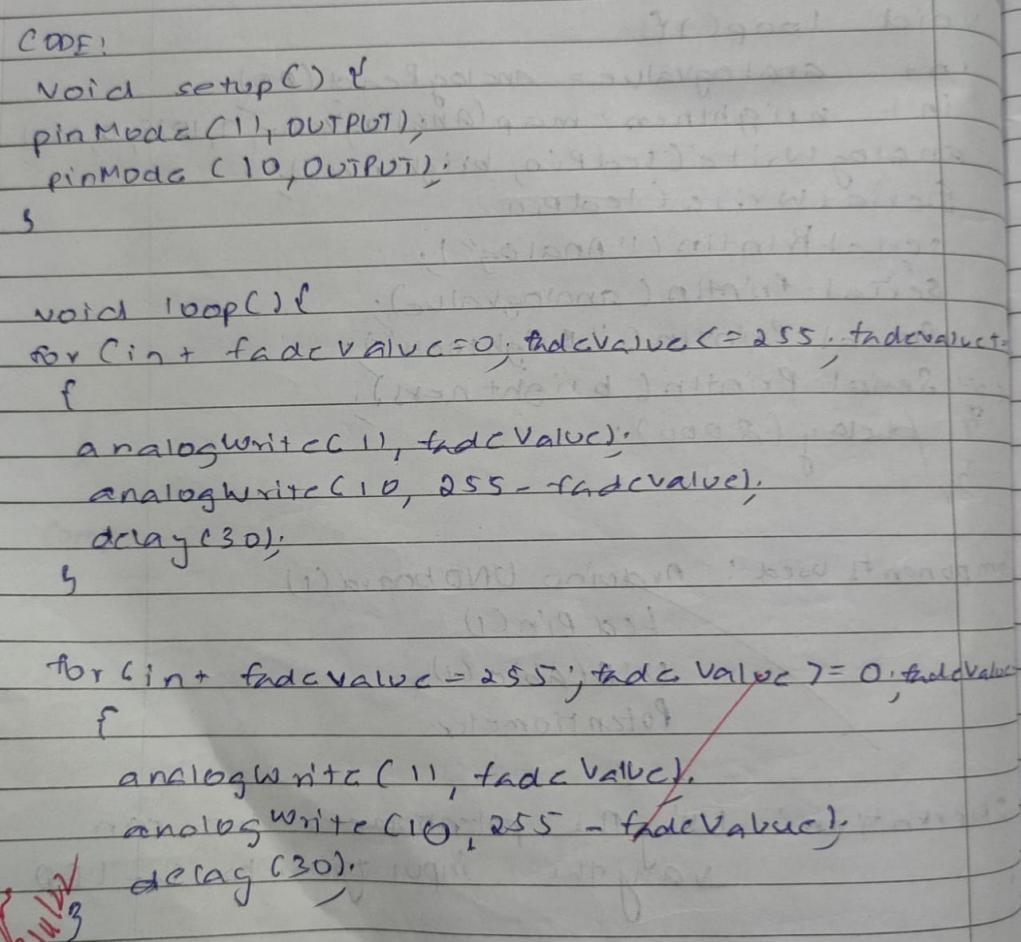 CODE:
void setup() {
pinMode (11, OUTPUT);
pinMode (10, OUTPUT);
}
void loop() {
for (int fadeValue=0; fadeValue<=255; fadeValue+
{
analogWrite(11, fadeValue);
analogWrite(10, 255-fadeValue);
delay(30);
}
for (int fadeValue=255; fade Value>=0; fadeValue
{
analogWrite(11, fadeValue);
analogWrite(10, 255-fadeValue);
delay(30);
}